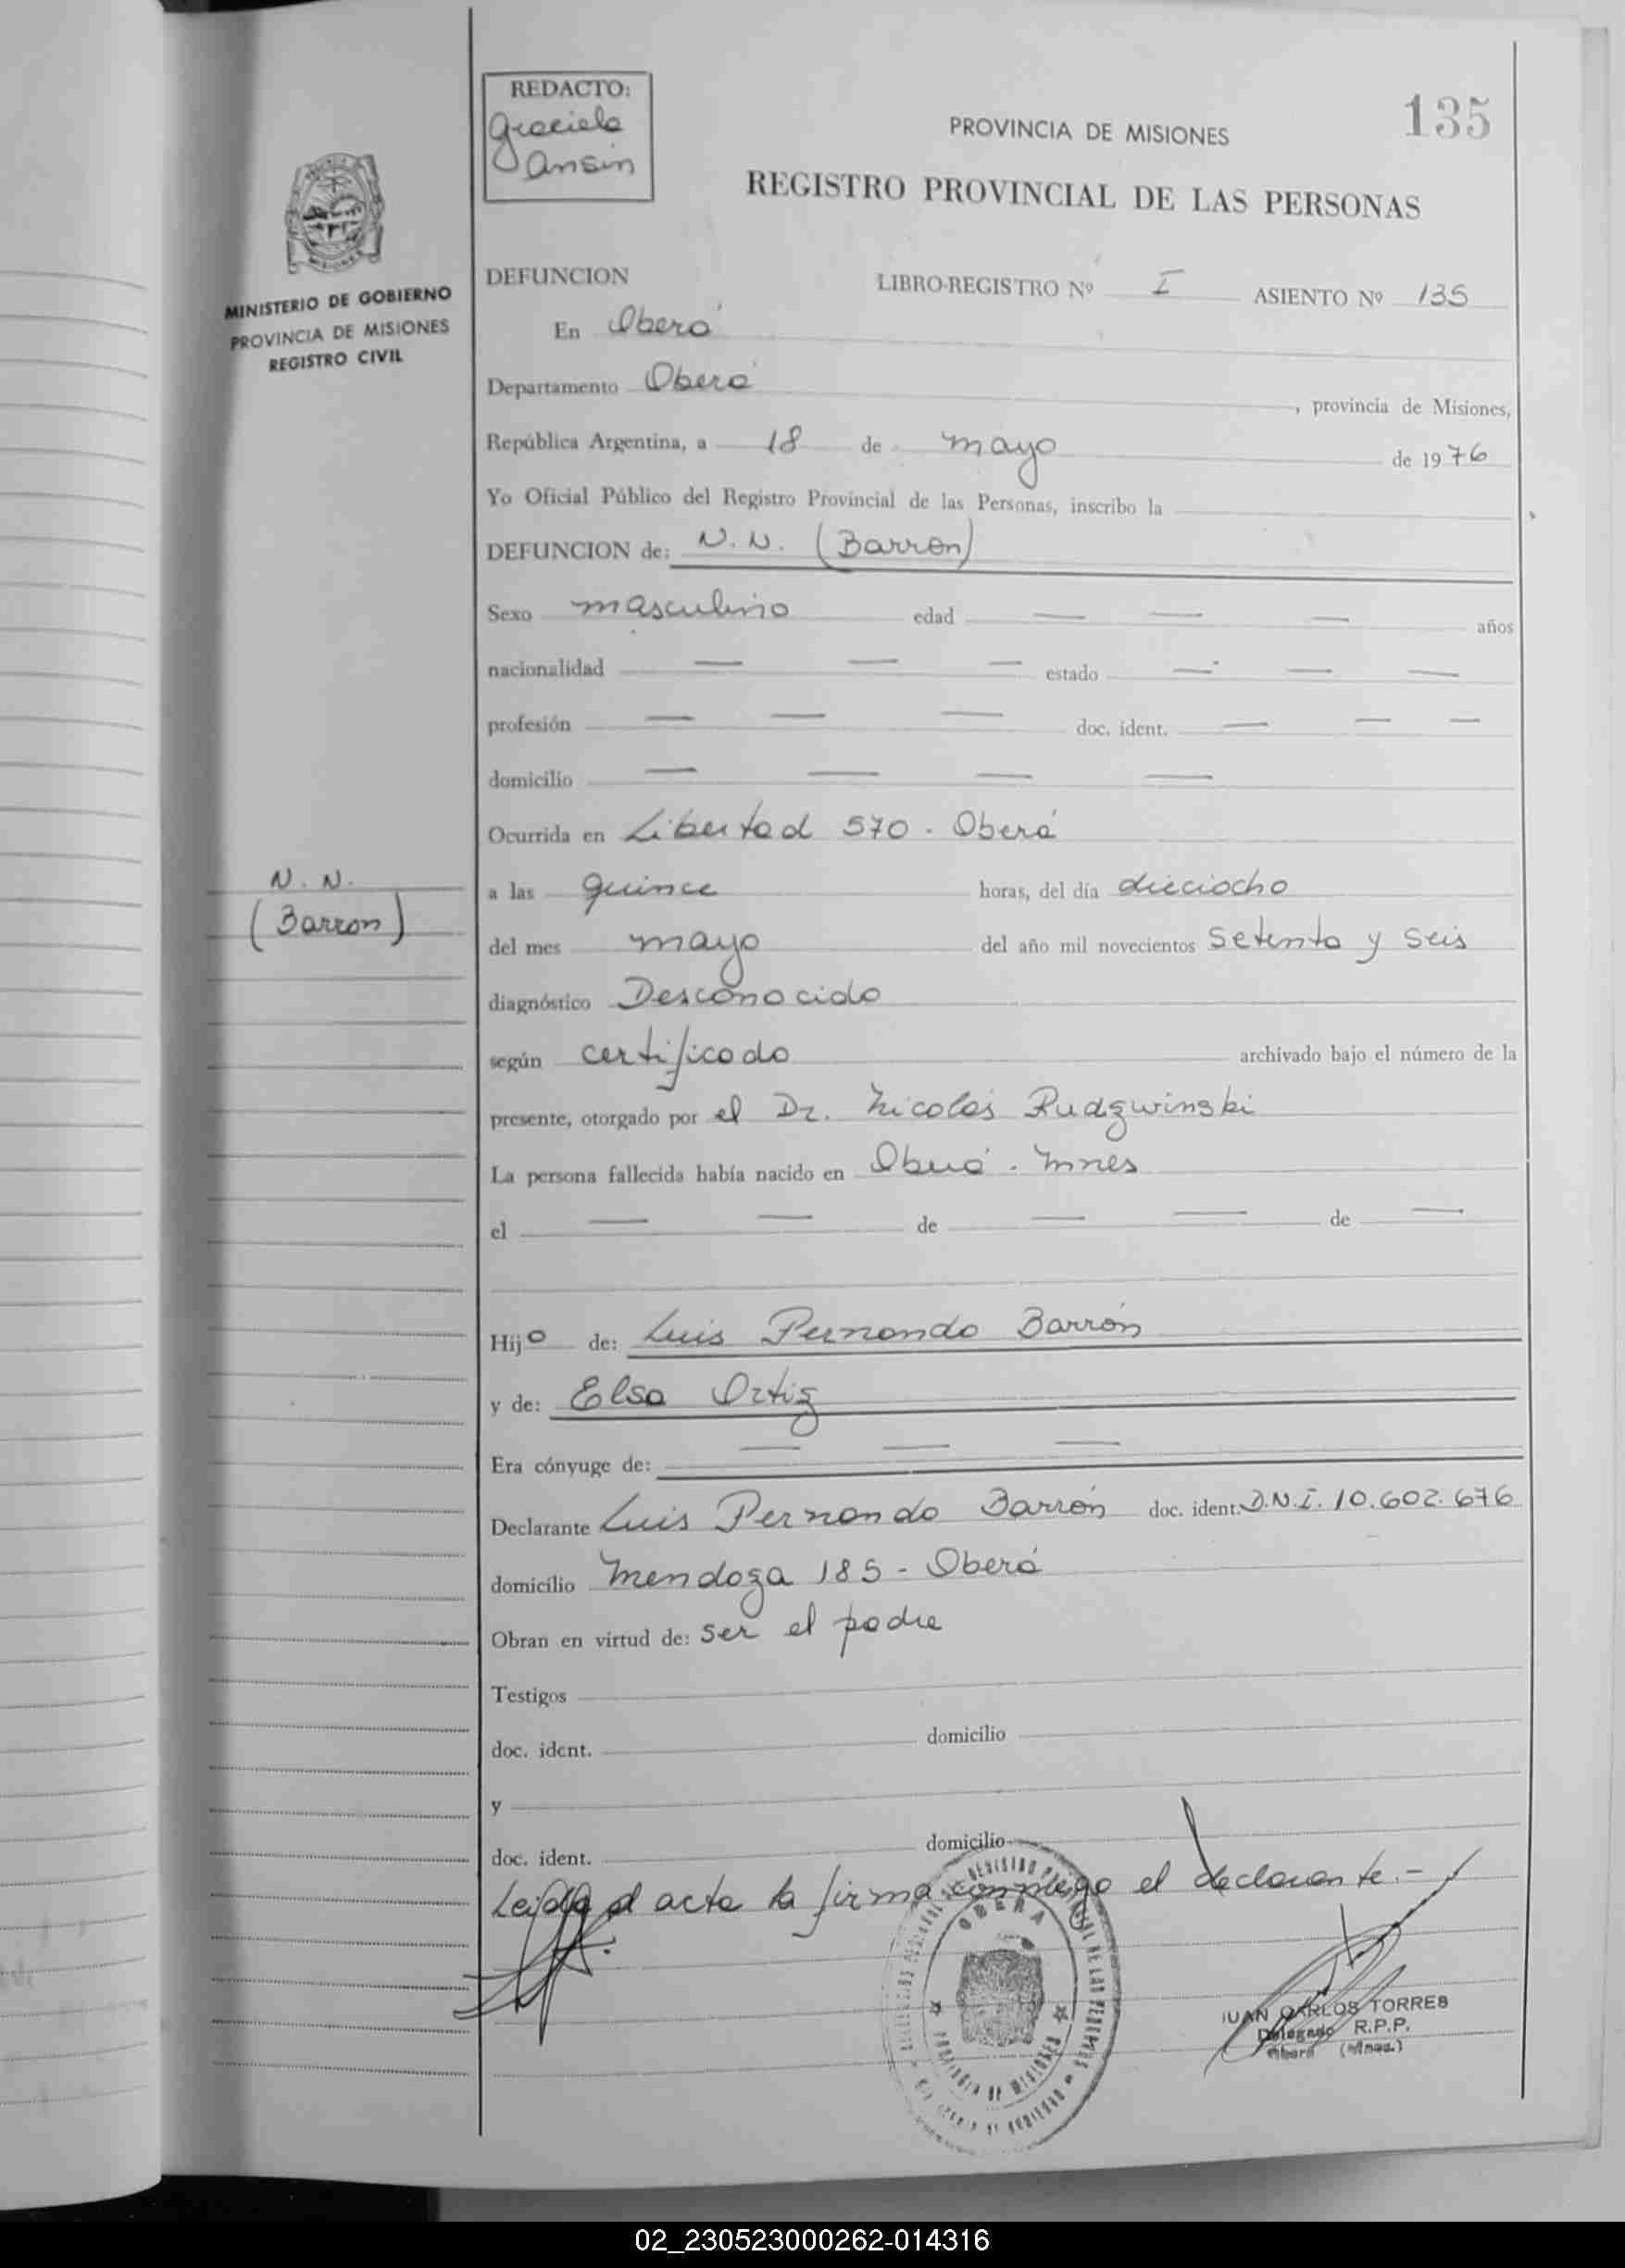 REDACTO:
Graciela
Ansin
135
PROVINCIA DE MISIONES
REGISTRO PROVINCIAL DE LAS PERSONAS
MINISTERIO DE GOBIERNO
PROVINCIA DE MISIONES
REGISTRO CIVIL
DEFUNCION LIBRO-REGISTRO Nº I ASIENTO Nº 135
En Oberá
Departamento Oberá, provincia de Misiones,
República Argentina, a 18 de mayo de 1976
Yo Oficial Público del Registro Provincial de las Personas, inscribo la
DEFUNCION de: N. N. (Barron)
Sexo masculino edad — — — años
nacionalidad — — — estado — — —
profesión — — — doc. ident. — — —
domicilio — — — —
Ocurrida en Libertad 570 - Oberá
N. N.
(Barron)
a las quince horas, del día dieciocho
del mes mayo del año mil novecientos setenta y seis
diagnóstico Desconocido
según certificado archivado bajo el número de la
presente, otorgado por el Dr. Nicolás Rudzwinski
La persona fallecida había nacido en Oberá - Mnes
el — — de — — de —
Hijo de: Luis Fernando Barrón
y de: Elsa Ortiz
Era cónyuge de: — — —
Declarante Luis Fernando Barrón doc. ident. D.N.I. 10.602.676
domicilio Mendoza 185 - Oberá
Obran en virtud de: ser el padre
Testigos
doc. ident. domicilio
y
doc. ident. domicilio
Leída el acta la firma conmigo el declarante.-
OBERA
PROVINCIA DE MISIONES
JUAN CARLOS TORRES
Delegado R.P.P.
Oberá (Mnes.)
02_230523000262-014316